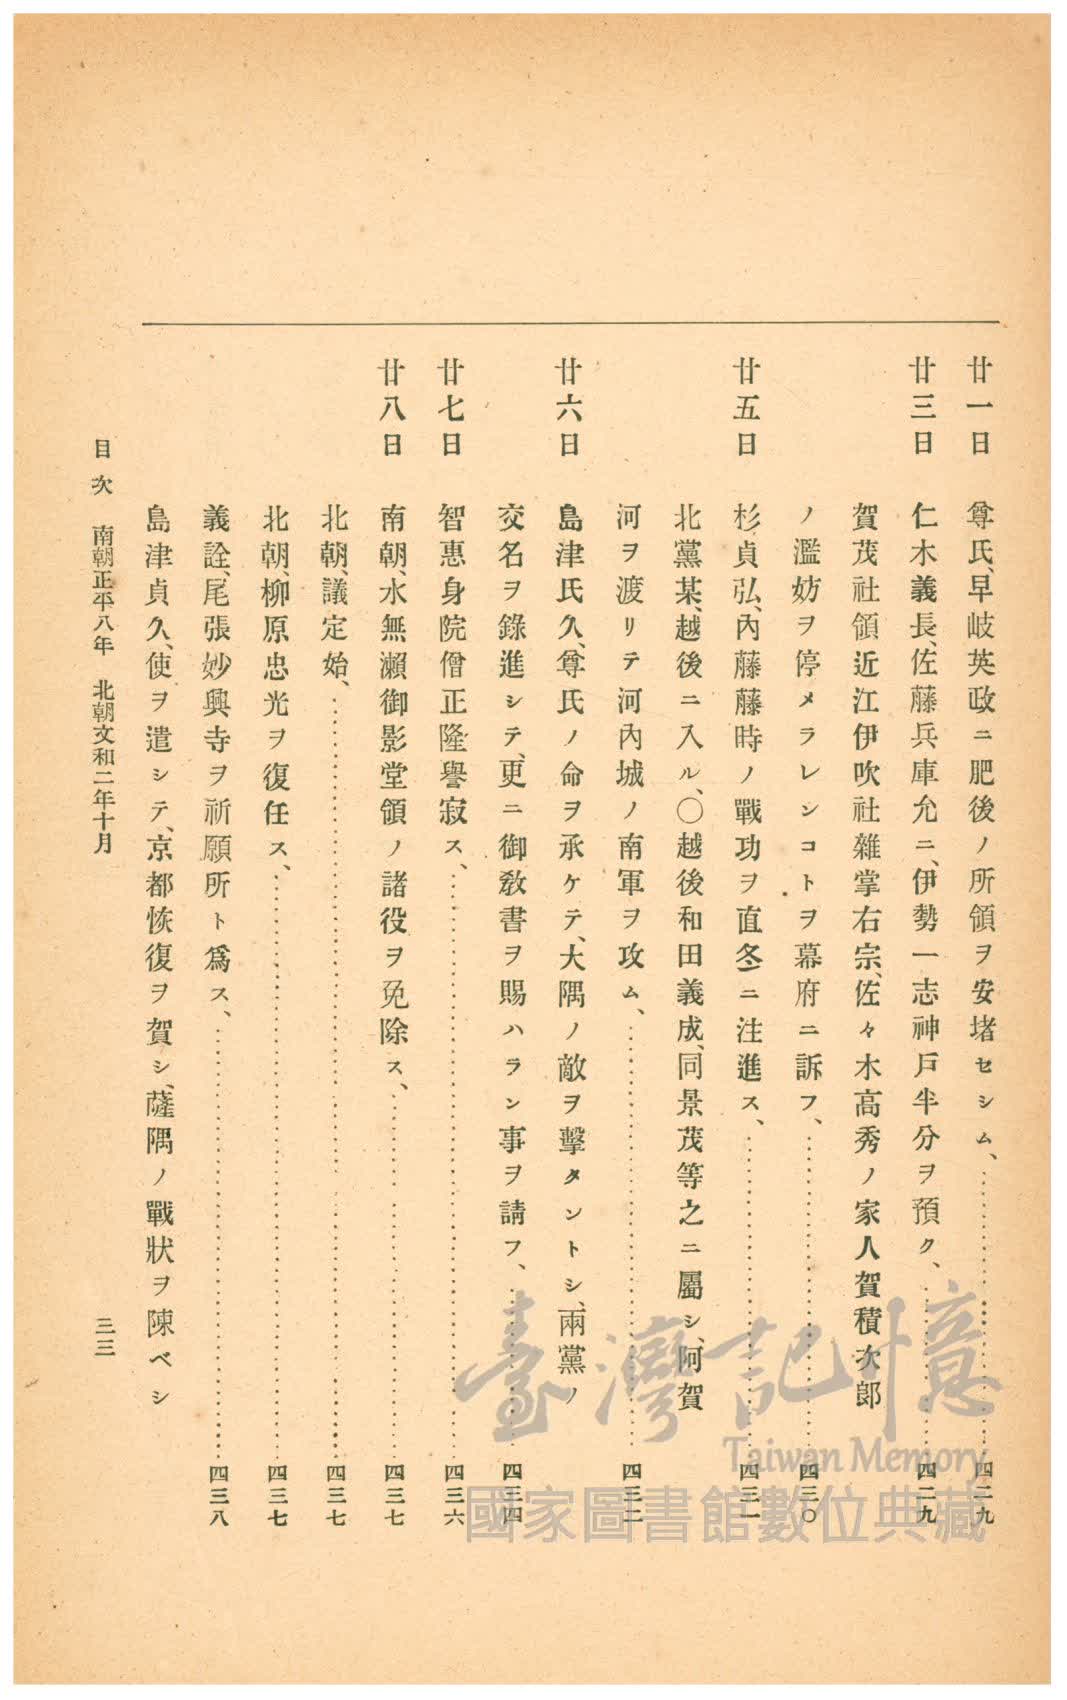 廿一日　尊氏、早岐英政ニ肥後ノ所領ヲ安堵セシム、……四二九
廿三日　仁木義長、佐藤兵庫允ニ、伊勢一志神戸半分ヲ預ク、……四二九
賀茂社領近江伊吹社雜掌右宗、佐々木高秀ノ家人賀積次郎
ノ濫妨ヲ停メラレンコトヲ幕府ニ訴フ、……四三〇
廿五日　杉貞弘、內藤藤時ノ戰功ヲ直冬ニ注進ス、……四三一
北黨某、越後ニ入ル、〇越後和田義成、同景茂等之ニ屬シ、阿賀
河ヲ渡リテ河內城ノ南軍ヲ攻ム、……四三二
廿六日　島津氏久、尊氏ノ命ヲ承ケテ、大隅ノ敵ヲ擊タントシ、兩黨ノ
交名ヲ錄進シテ、更ニ御教書ヲ賜ハラン事ヲ請フ、……四三四
廿七日　智惠身院僧正隆譽寂ス、……四三六
廿八日　南朝、水無瀨御影堂領ノ諸役ヲ免除ス、……四三七
北朝、議定始、……四三七
北朝、柳原忠光ヲ復任ス、……四三七
義詮、尾張妙興寺ヲ祈願所ト爲ス、……四三八
島津貞久、使ヲ遣シテ、京都恢復ヲ賀シ、薩隅ノ戰狀ヲ陳ベシ
目次　南朝正平八年　北朝文和二年十月　三三
臺灣記憶
Taiwan Memory
國家圖書館數位典藏